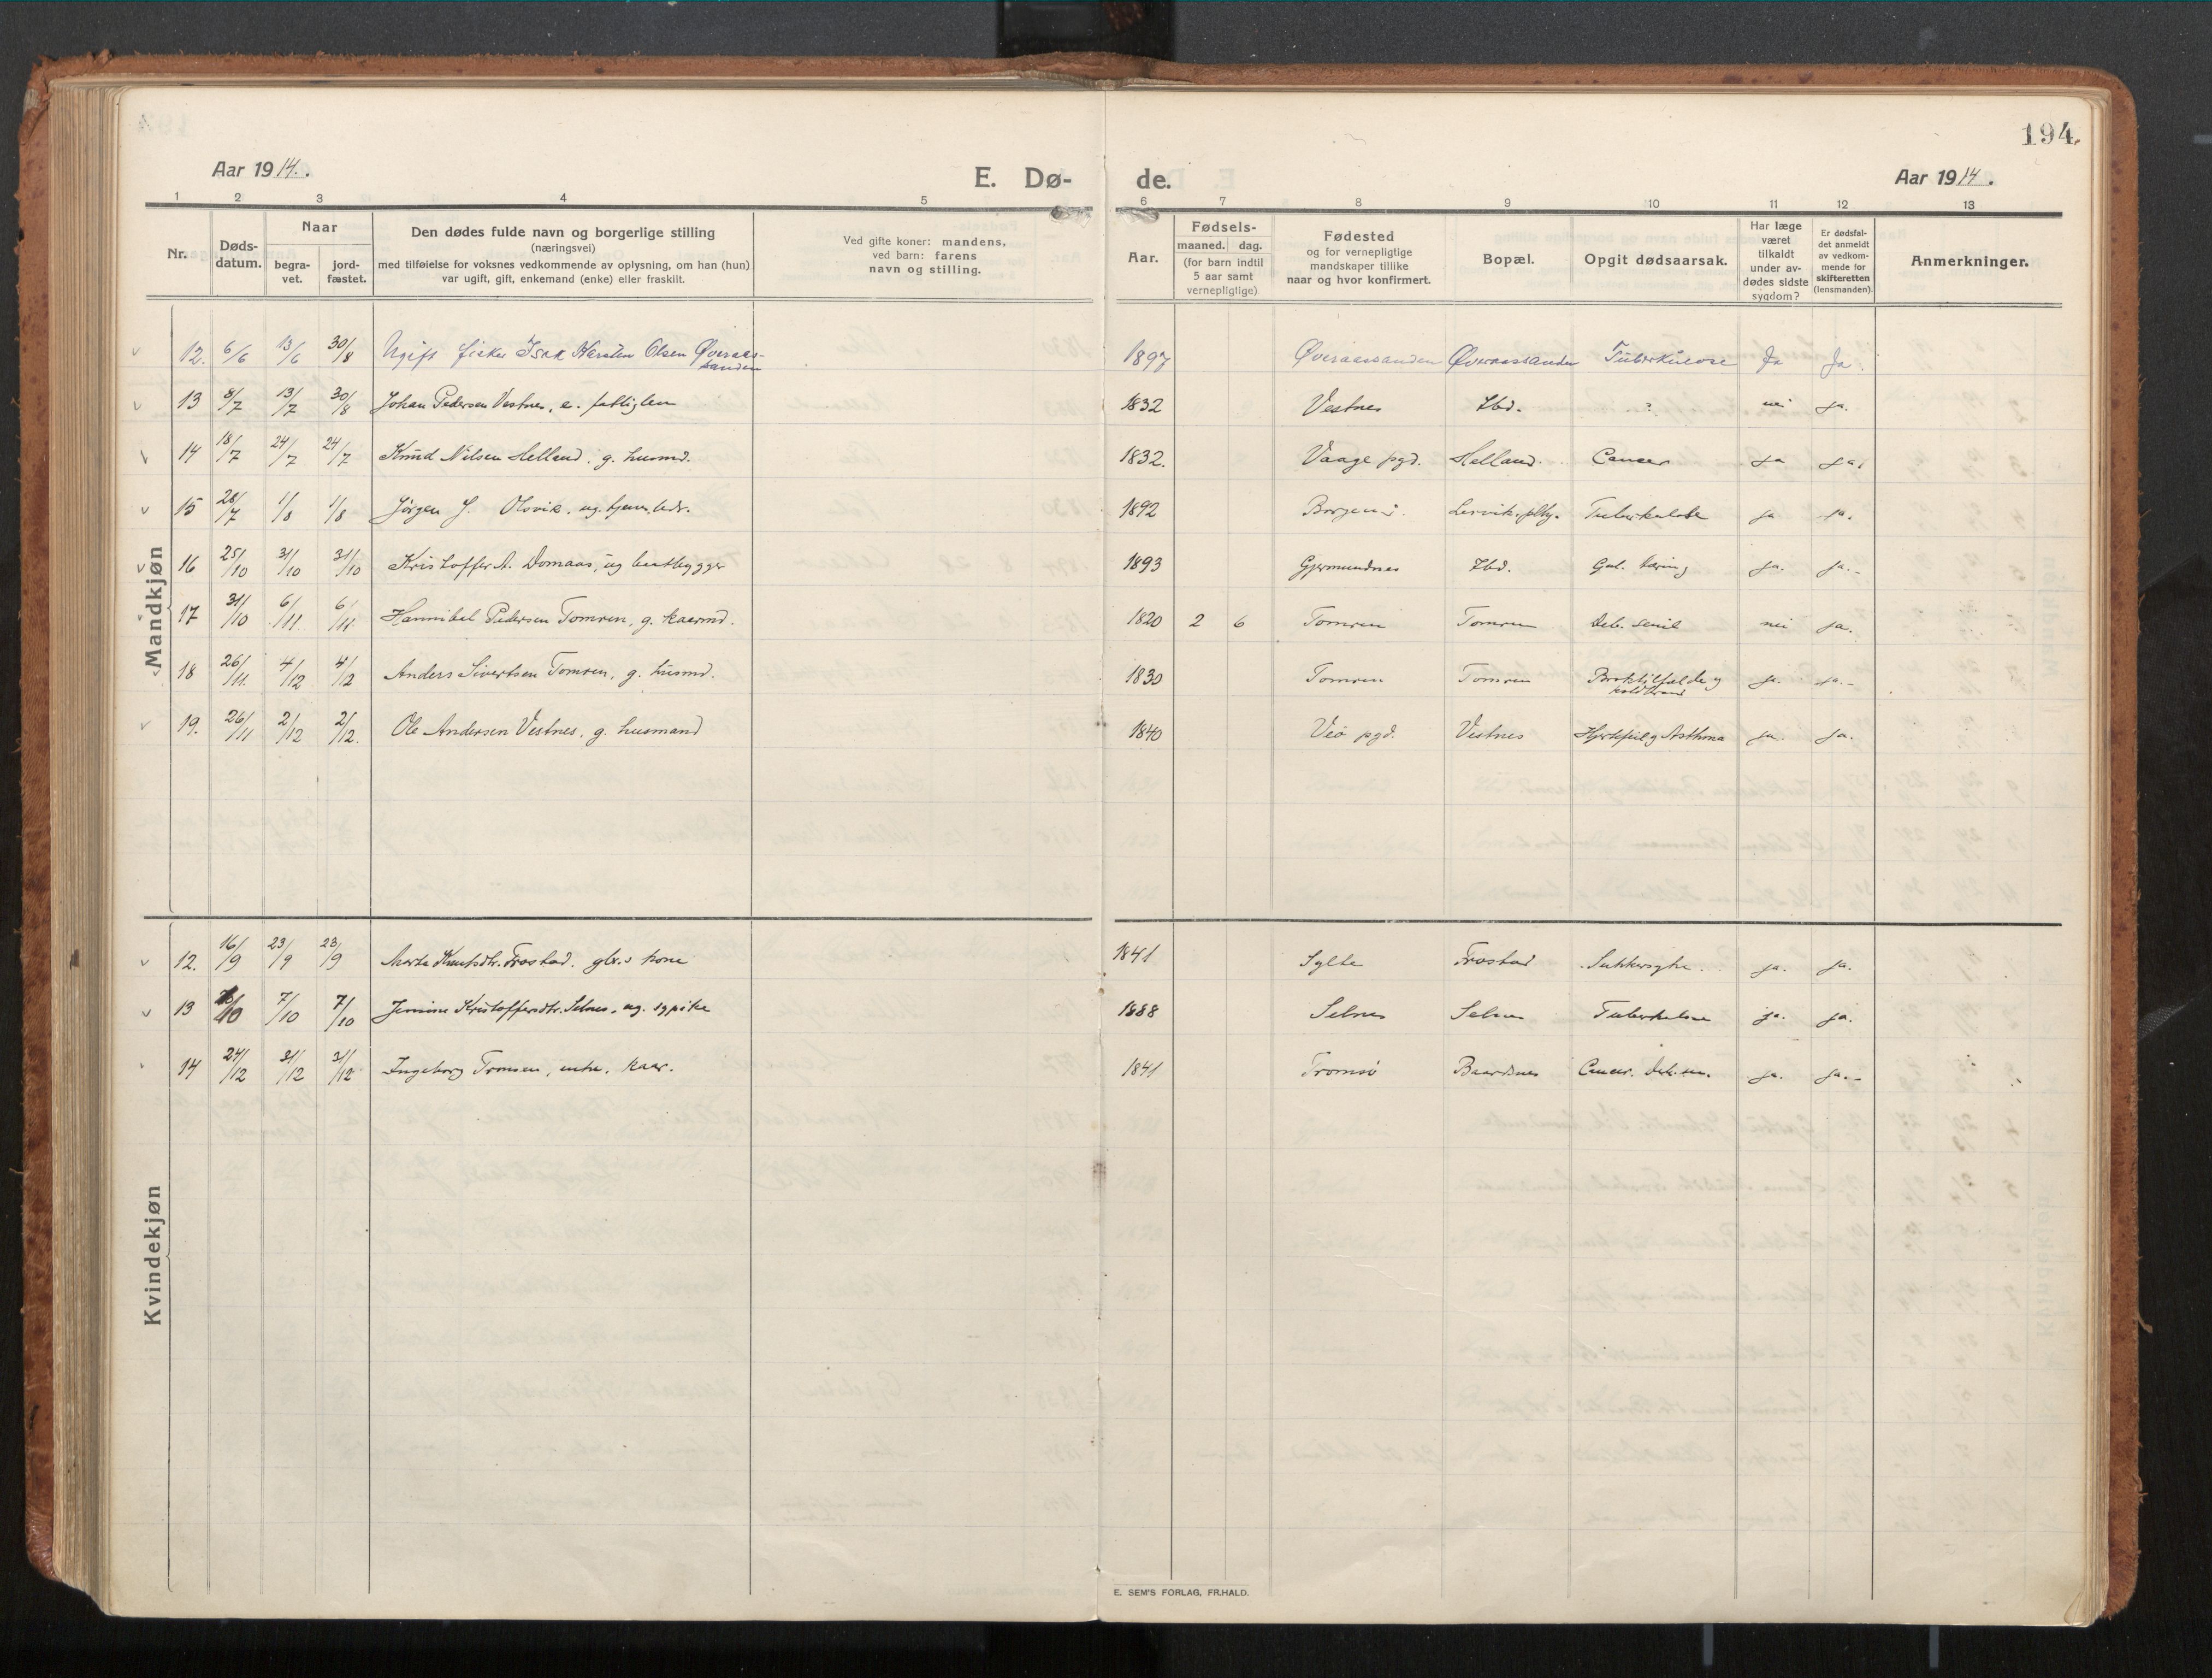 194.
Aar 1914.
E. Dø-
de.
Aar 1914.
1 2 3 4 5 6 7 8 9 10 11 12 13
Nr.
Døds-
datum.
Naar
begra-
vet.
jord-
fæstet.
Den dødes fulde navn og borgerlige stilling
(næringsvei)
med tilføielse for voksnes vedkommende av oplysning, om han (hun)
var ugift, gift, enkemand (enke) eller fraskilt.
Ved gifte koner: mandens,
ved barn: farens
navn og stilling.
Aar.
Fødsels-
maaned. dag.
(for barn indtil
5 aar samt
vernepligtige)
Fødested
og for vernepligtige
mandskaper tillike
naar og hvor konfirmert.
Bopæl.
Opgit dødsaarsak.
Har læge
været
tilkaldt
under av-
dødes sidste
sygdom?
Er dødsfal-
det anmeldt
av vedkom-
mende for
skifteretten
(lensmanden).
Anmerkninger.
Mandkjøn
12. 6/6 13/6 30/8 Ugift fisker Isak Karsten Olsen Øveraas-
sanden 1897 Øveraassanden Øveraassanden Tuberkulose Ja Ja.
13 8/7 13/7 30/8 Johan Pedersen Vestnes, e. fattiglem 1832 Vestnes Ibd. ? nei ja.
14 18/7 24/7 24/7 Knud Nilsen Helland, g. husmd. 1832. Vaage pgd. Helland. Cancer ja ja.
15 28/7 1/8 1/8 Jörgen J. Olsvik, ug. 1892 Tuberkulose ja ja.
16 25/10 31/10 31/10 Kristoffer A. Domaas, ug baatbygger 1893 Gjermundnes Ibd. Gal. tæring ja. ja.-
17 31/10 6/11 6/11 Hannibal Pedersen Tomren, g. kaarmd. 1820 2 6 Tomren Tomren Deb. senil nei ja.
18 26/11. 4/12 4/12 Anders Sivertsen Tomren, g. husmd. 1830 Tomren Tomren Broktilfælde og
koldbrand ja. ja.-
19. 26/11 2/12 2/12. Ole Andersen Vestnes, g. husmand 1840 Veö pgd. Vestnes Hjertefeil og Asthma ja. ja.
Kvindekjøn
12. 16/9 23/9 23/9 Marta Knutsdtr. Frostad. gbr.s kone 1841 Sylte Frostad Sukkersyke. ja. ja.
13 7/10 7/10 Jensine Kristoffersdtr. Selnes, ug. sypike 1888 Selnes Selnes Tuberkulose ja. ja.
14 24/12 31/12 31/12 Ingeborg Tronsen, enke, kaar. 1841 Tromsö Baardsnes Cancer. Deb. sen. ja. ja.-
E. SEM'S FORLAG, FR.HALD.